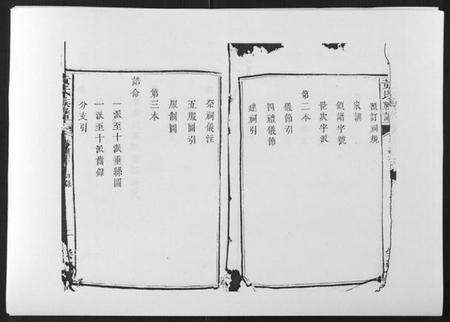 議訂祠規
家訓
派諸字號
長次字派
第二本
儀節引
四禮儀節
建祠引
祭祠儀注
五服圖引
服制圖
第三本
誥命
一派至十派垂絲圖
一派至十派齒錄
分支引